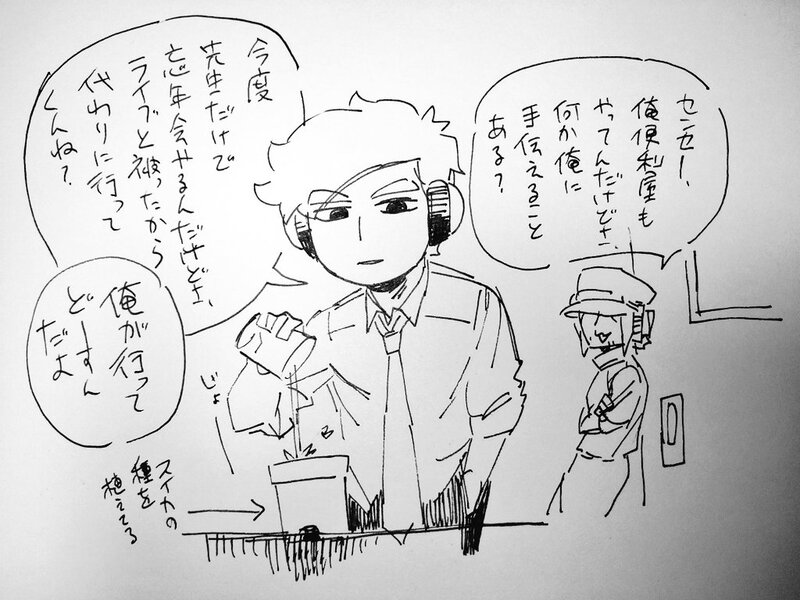 センセー、
俺便利屋も
やってんだけどさ、
何か俺に
手伝えること
ある？
今度
先生だけで
忘年会やるんだけどさ、
ライブと被ったから
代わりに行って
くんね？
俺が行って
どーすん
だよ
じょ
スイカの
種を
植えてる